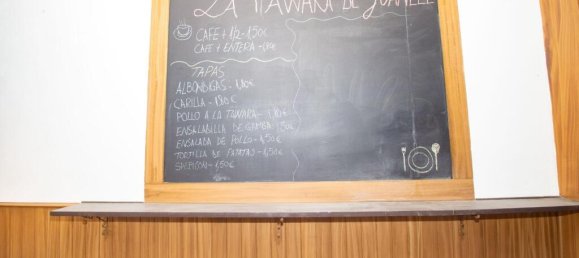 LA TAWARA DE JUANELE
CAFE + 1/2 - 1,50€
CAFE + ENTERA -
TAPAS
ALBONDIGAS - 1,80€
CARILLA - 1,80€
POLLO A LA TAWARA - 1,80€
ENSALADILLA DE GAMBA 1,50€
ENSALADA DE POLLO - 1,50€
TORTILLA DE PATATAS - 1,50€
- 1,50€